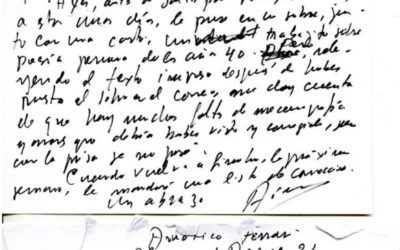 Ayer, antes de salir por
a estos unos días, le puse en un sobre, jun-
to con una carta, un trabajito sobre
poesía peruana de los años 40. Pero, rele-
yendo el texto impreso después de haber
puesto el sobre al correo, me doy cuenta
de que hay muchas faltas de mecanografía
y errores que debía haber visto y corregido, pero
con la prisa se me pasó.
Cuando vuelva a Ginebra, la próxima
semana, le mandaré una lista de correcciones.
Un abrazo
Américo Ferrari